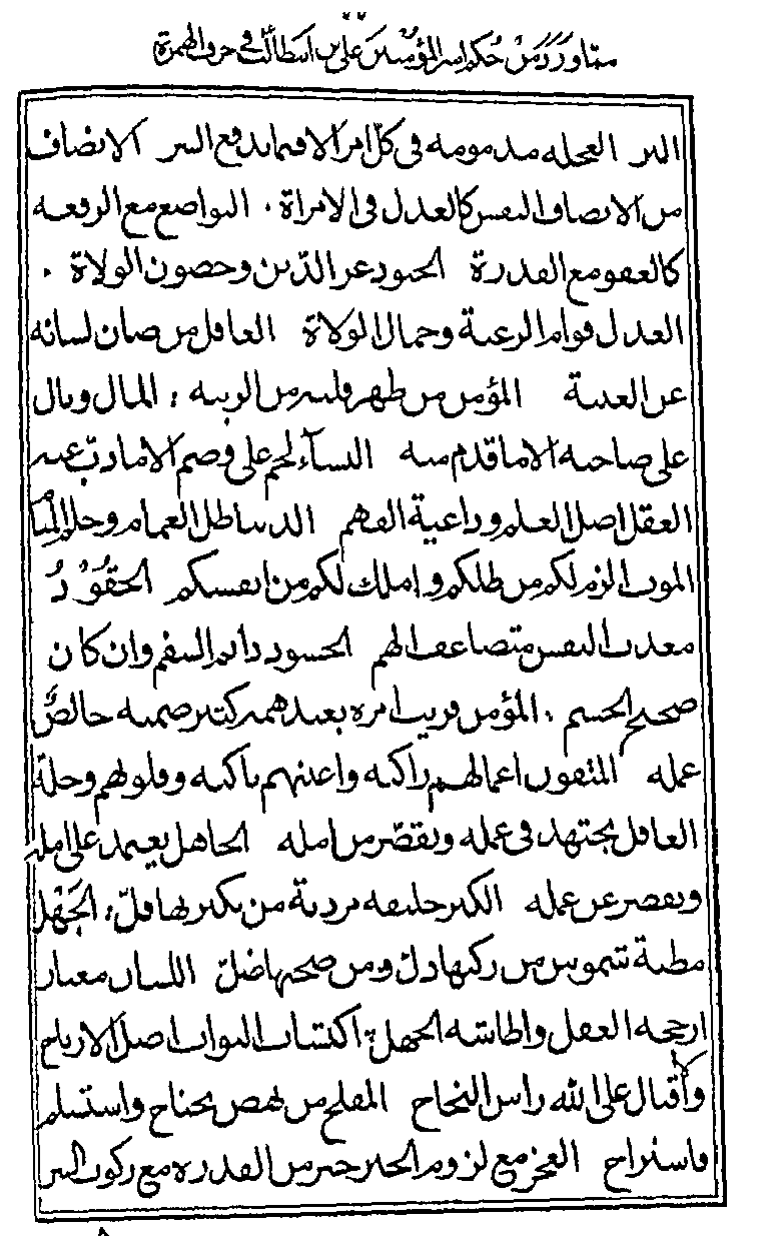 مما ورد من حكم أمير المؤمنين علي بن أبي طالب في حرف الهمزة
العجلة مذمومة في كل أمر إلا فيما يدفع الشر الإنصاف
من النفس كالعدل في الإمرة . التواضع مع الرفعة
كالعفو مع القدرة الجنود عز الدين وحصون الولاة .
العدل قوام الرعية وجمال الولاة العاقل من صان لسانه
عن الغيبة المؤمن من طهر قلبه من الريبة ؛ المال وبال
على صاحبه إلا ما قدم منه النساء لحم على وضم إلا ما ذب عنه
العقل أصل العلم وداعية الفهم الدنيا ظل الغمام وحلم المنام
الموت ألزم لكم من ظلكم وأملك لكم من أنفسكم الحقود
معذب النفس متضاعف الهم الحسود دائم السقم وإن كان
صحيح الجسم . المؤمن قريب أمره بعيد همه كثير صمته خالص
عمله المتقون أعمالهم زاكية وأعينهم باكية وقلوبهم وجلة
العاقل يجتهد في عمله ويقصر من أمله الجاهل يعتمد على أمله
ويقصر من عمله الكبر خليقة مردية من تكثر بها قل ؛ الجهل
مطية شموس من ركبها زل ومن صحبها ضل اللسان معيار
أرجحه العقل وأطاشه الجهل ؛ اكتساب الثواب أصل الأرباح
وإقبال على الله رأس النجاح المفلح من نهض بجناح واستسلم
فاستراح العجز مع لزوم الخير خير من القدرة مع ركوب الشر